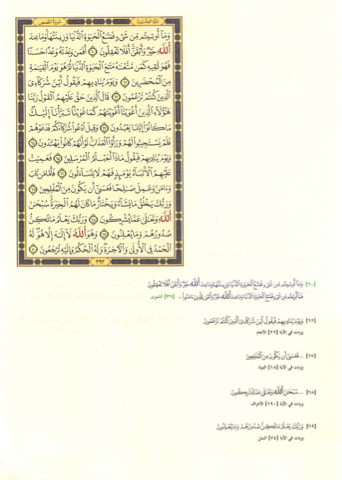 سورة القصص
الجزء العشرون
وَمَا أُوتِيتُم مِّن شَىْءٍ فَمَتَٰعُ ٱلْحَيَوٰةِ ٱلدُّنْيَا وَزِينَتُهَا وَمَا عِندَ
ٱللَّهِ خَيْرٌ وَأَبْقَىٰٓ أَفَلَا تَعْقِلُونَ ٦٠ أَفَمَن وَعَدْنَٰهُ وَعْدًا حَسَنًا
فَهُوَ لَٰقِيهِ كَمَن مَّتَّعْنَٰهُ مَتَٰعَ ٱلْحَيَوٰةِ ٱلدُّنْيَا ثُمَّ هُوَ يَوْمَ ٱلْقِيَٰمَةِ
مِنَ ٱلْمُحْضَرِينَ ٦١ وَيَوْمَ يُنَادِيهِمْ فَيَقُولُ أَيْنَ شُرَكَآءِىَ
ٱلَّذِينَ كُنتُمْ تَزْعُمُونَ ٦٢ قَالَ ٱلَّذِينَ حَقَّ عَلَيْهِمُ ٱلْقَوْلُ رَبَّنَا
هَٰٓؤُلَآءِ ٱلَّذِينَ أَغْوَيْنَآ أَغْوَيْنَٰهُمْ كَمَا غَوَيْنَا تَبَرَّأْنَآ إِلَيْكَ
مَا كَانُوٓا۟ إِيَّانَا يَعْبُدُونَ ٦٣ وَقِيلَ ٱدْعُوا۟ شُرَكَآءَكُمْ فَدَعَوْهُمْ
فَلَمْ يَسْتَجِيبُوا۟ لَهُمْ وَرَأَوُا۟ ٱلْعَذَابَ لَوْ أَنَّهُمْ كَانُوا۟ يَهْتَدُونَ ٦٤
وَيَوْمَ يُنَادِيهِمْ فَيَقُولُ مَاذَآ أَجَبْتُمُ ٱلْمُرْسَلِينَ ٦٥ فَعَمِيَتْ
عَلَيْهِمُ ٱلْأَنۢبَآءُ يَوْمَئِذٍ فَهُمْ لَا يَتَسَآءَلُونَ ٦٦ فَأَمَّا مَن تَابَ
وَءَامَنَ وَعَمِلَ صَٰلِحًا فَعَسَىٰٓ أَن يَكُونَ مِنَ ٱلْمُفْلِحِينَ ٦٧
وَرَبُّكَ يَخْلُقُ مَا يَشَآءُ وَيَخْتَارُ مَا كَانَ لَهُمُ ٱلْخِيَرَةُ سُبْحَٰنَ
ٱللَّهِ وَتَعَٰلَىٰ عَمَّا يُشْرِكُونَ ٦٨ وَرَبُّكَ يَعْلَمُ مَا تُكِنُّ
صُدُورُهُمْ وَمَا يُعْلِنُونَ ٦٩ وَهُوَ ٱللَّهُ لَآ إِلَٰهَ إِلَّا هُوَ لَهُ
ٱلْحَمْدُ فِى ٱلْأُولَىٰ وَٱلْءَاخِرَةِ وَلَهُ ٱلْحُكْمُ وَإِلَيْهِ تُرْجَعُونَ ٧٠
٣٩٣
[٦٠] وَمَا أُوتِيتُم مِّن شَىْءٍ فَمَتَٰعُ ٱلْحَيَوٰةِ ٱلدُّنْيَا وَزِينَتُهَا وَمَا عِندَ ٱللَّهِ خَيْرٌ وَأَبْقَىٰٓ أَفَلَا تَعْقِلُونَ
فَمَآ أُوتِيتُم مِّن شَىْءٍ فَمَتَٰعُ ٱلْحَيَوٰةِ ٱلدُّنْيَا وَمَا عِندَ ٱللَّهِ خَيْرٌ وَأَبْقَىٰ لِلَّذِينَ ءَامَنُوا۟ ... [٣٦] الشورى
[٦٢] وَيَوْمَ يُنَادِيهِمْ فَيَقُولُ أَيْنَ شُرَكَآءِىَ ٱلَّذِينَ كُنتُمْ تَزْعُمُونَ
وردت في الآية [٢٢] الأنعام
[٦٧] ... فَعَسَىٰٓ أَن يَكُونَ مِنَ ٱلْمُفْلِحِينَ
وردت في الآية [١٨] التوبة
[٦٨] ... سُبْحَٰنَ ٱللَّهِ وَتَعَٰلَىٰ عَمَّا يُشْرِكُونَ
وردت في الآية [١٩٠] الأعراف
[٦٩] وَرَبُّكَ يَعْلَمُ مَا تُكِنُّ صُدُورُهُمْ وَمَا يُعْلِنُونَ
وردت في الآية [٧٤] النمل